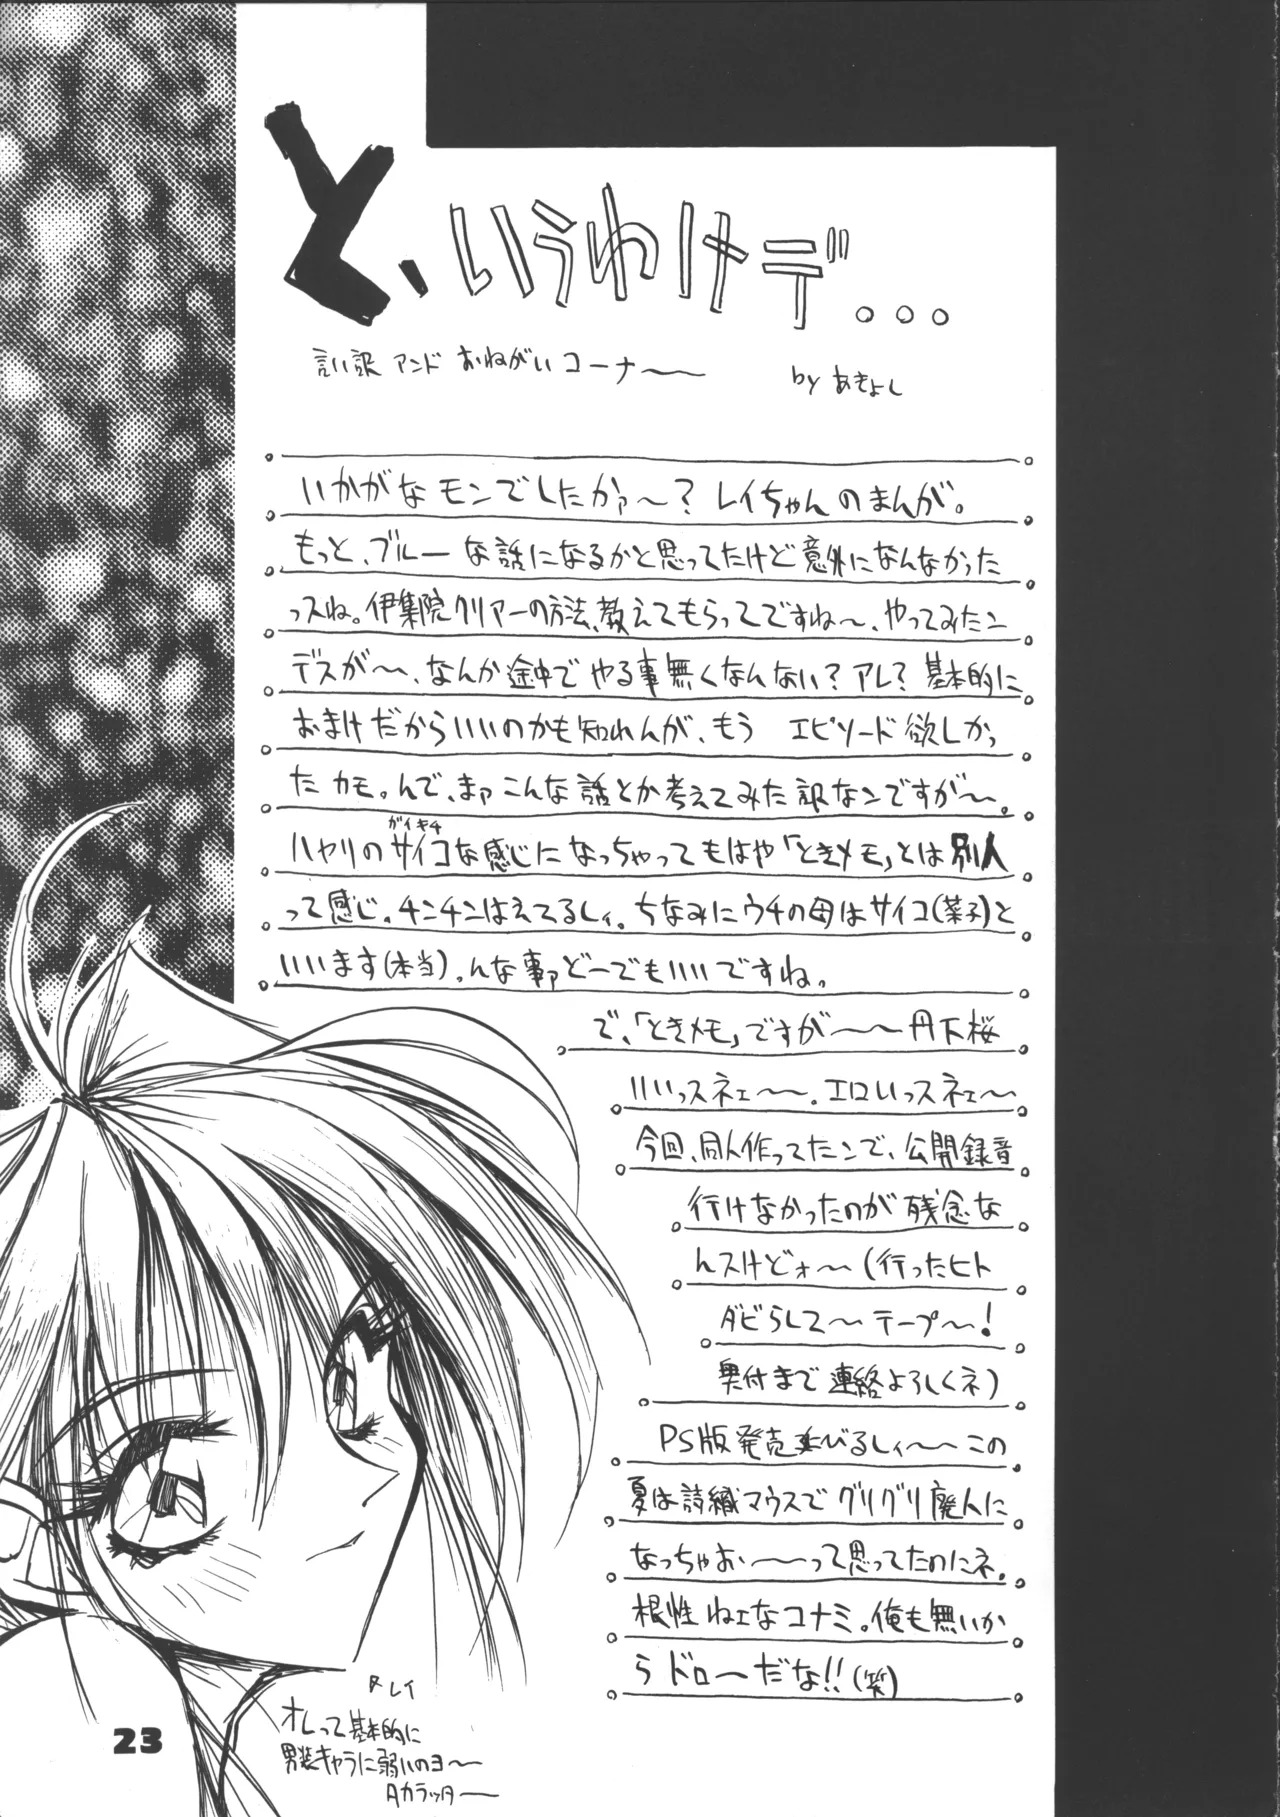 と、いうわけデ...
言い訳 アンド おねがい コーナ〜〜
by あきよし
いかがなモンでしたかァ〜？ レイちゃんのまんが。
もっと、ブルーな話になるかと思ってたけど意外になんなかった
っスね。伊集院クリアーの方法、教えてもらってですね〜、やってみたン
デスが〜、なんか途中でやる事無くなんない？アレ？ 基本的に
おまけだからいいのかも知れんが、もう エピソード欲しかっ
た カモ。んで、まァこんな話とか考えてみた訳なンですが〜。
ガイキチ
ハヤリのサイコな感じになっちゃってもはや「ときメモ」とは別人
って感じ。チンチンはえてるしィ。ちなみにウチの母はサイコ(菜子)と
いいます(本当)。んな事ァどーでもいいですね。
で、「ときメモ」ですが〜〜丹下桜
いいっスネェ〜〜。エロいっスネェ〜
今回、同人作ってたンで、公開録音
行けなかったのが残念な
んスけどォ〜(行ったヒト
ダビらして〜テープ〜！
奥付まで連絡よろしくネ)
PS版発売延びるしィ〜〜この
夏は詩織マウスでグリグリ廃人に
なっちゃお〜〜って思ってたのにネ。
根性ねェなコナミ。俺も無いか
らドロ〜だな!!(笑)
レイ
オレって基本的に
男装キャラに弱いのヨ〜
Aカラッタ〜
23